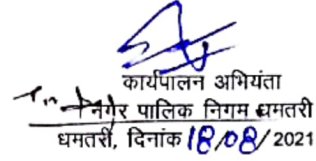 कार्यपालन अभियंता
नगर पालिक निगम धमतरी
धमतरी, दिनांक 18/08/ 2021